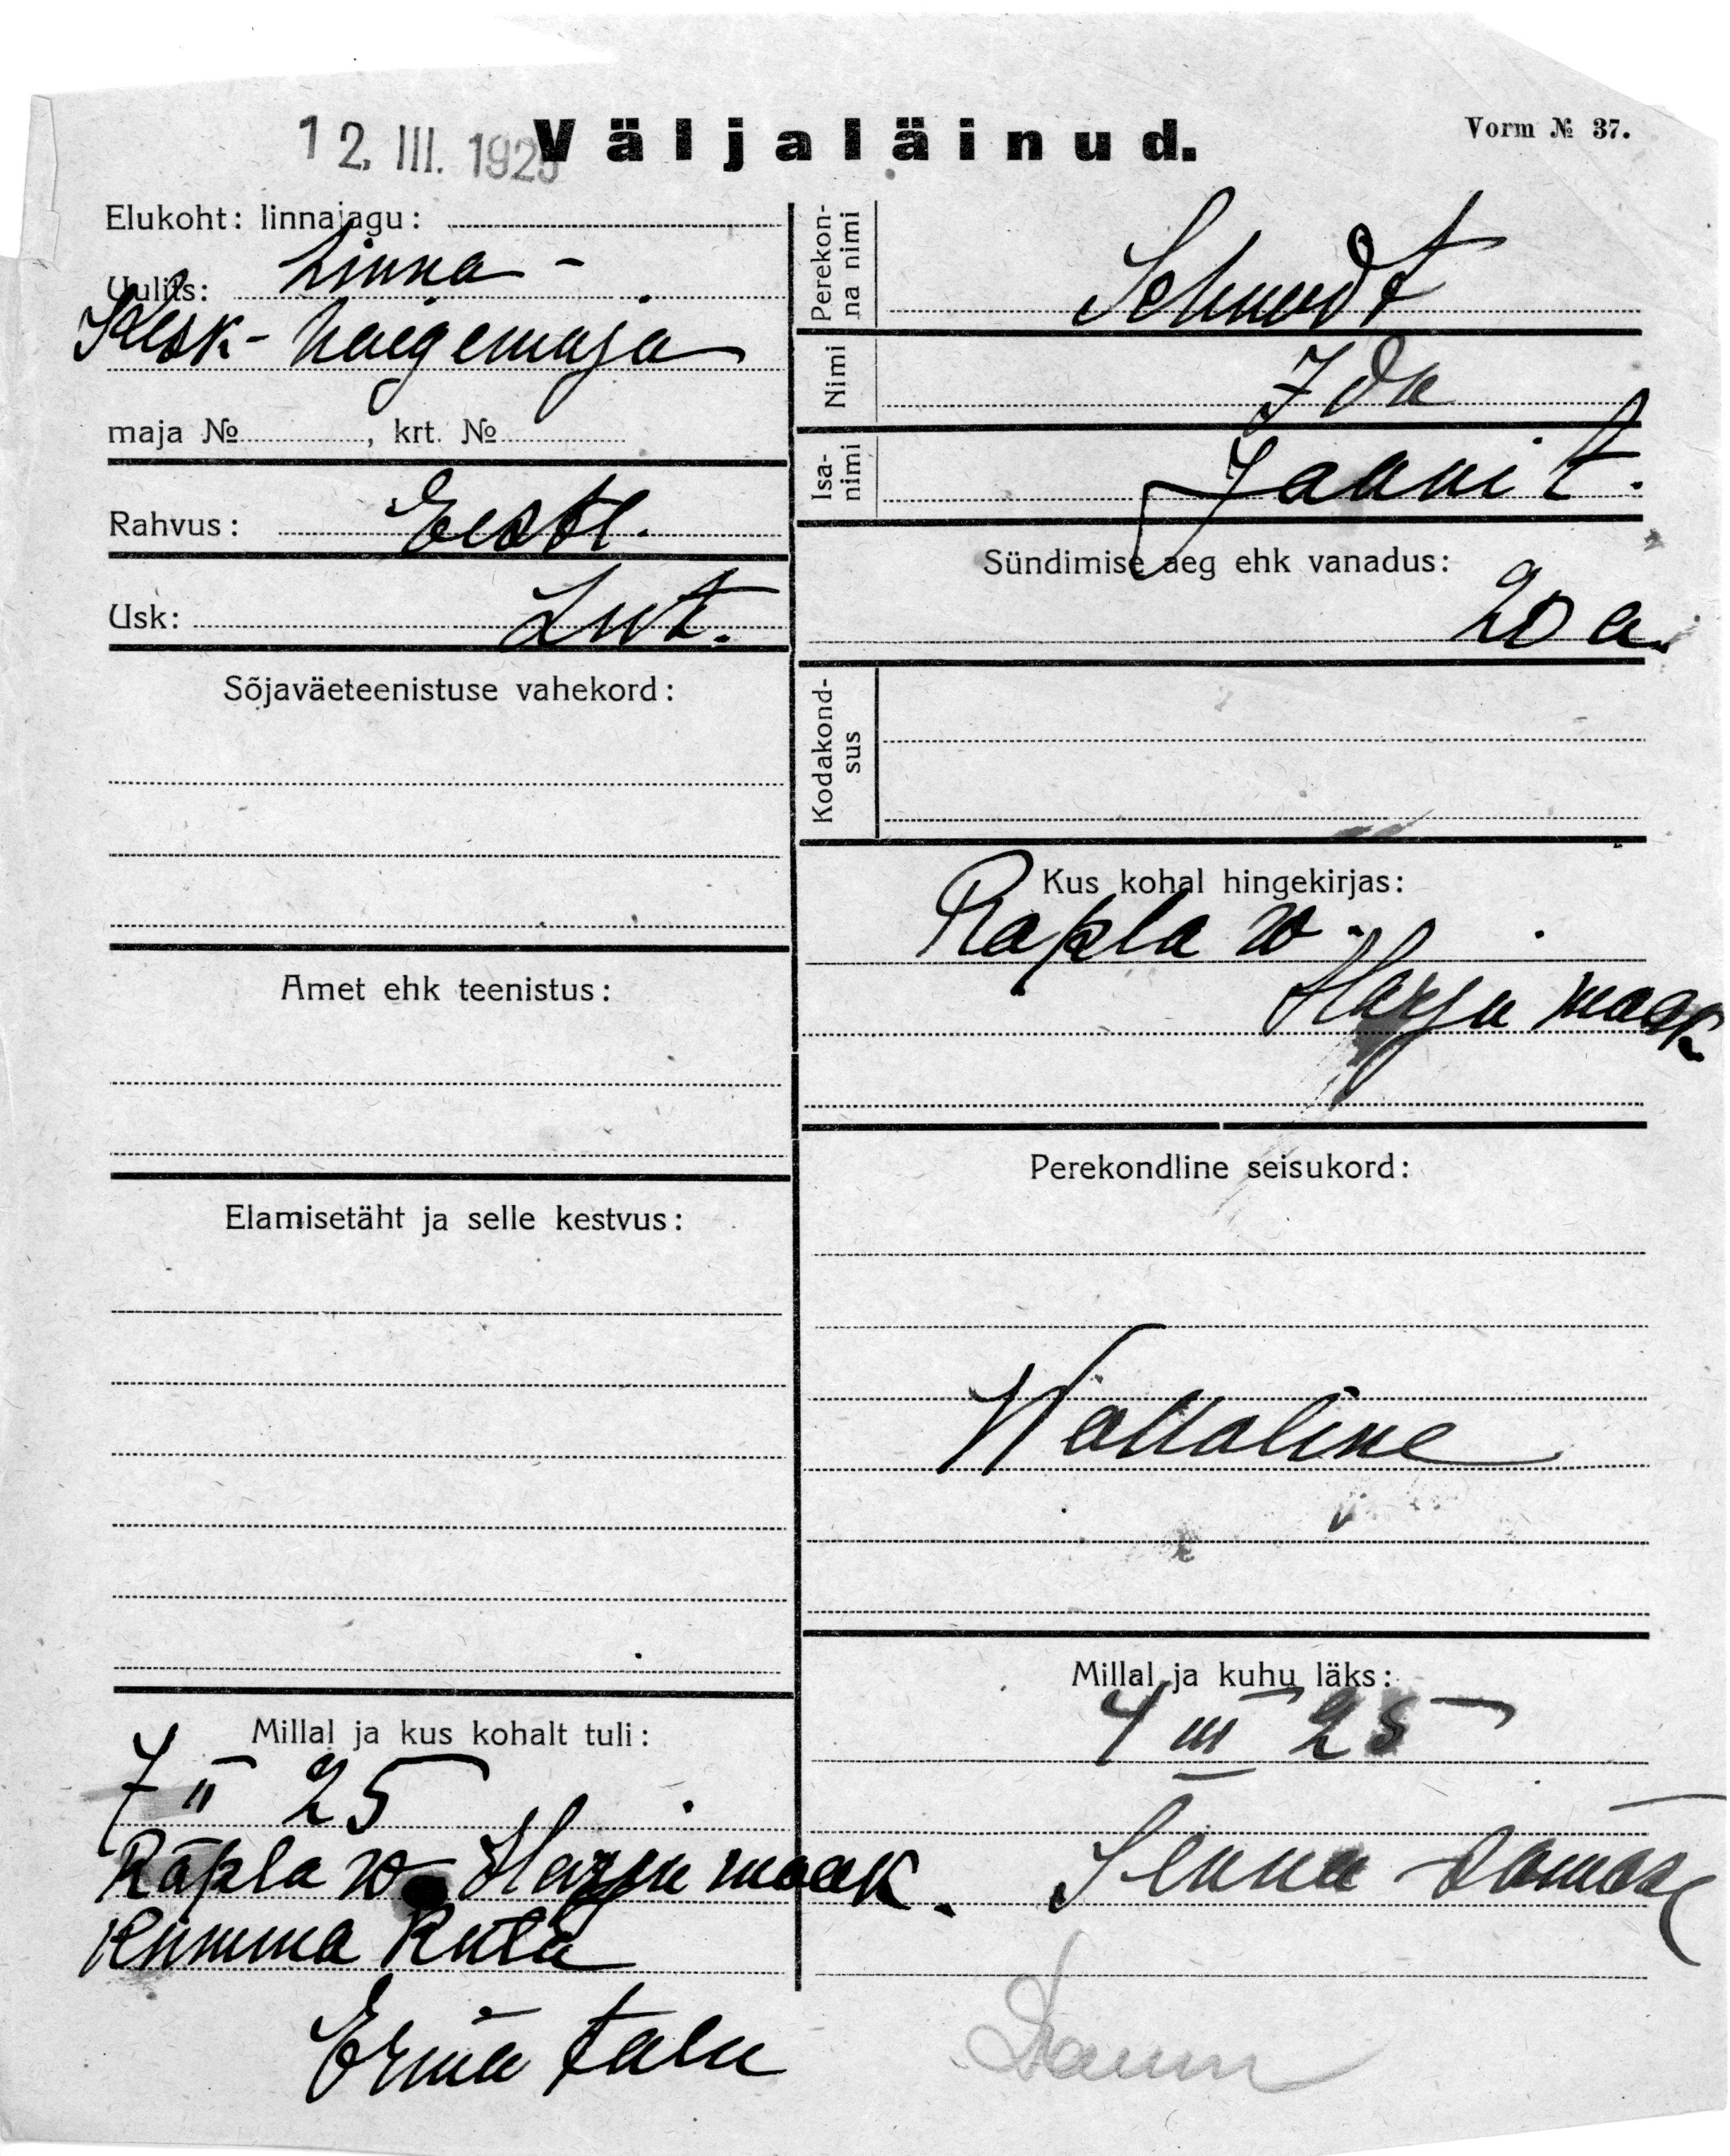 12. III. 1925
Väljaläinud.
Vorm № 37.
Elukoht: linnajagu:
Uulits: Linna-
Kesk-haigemaja
maja № , krt. №
Rahvus: Eestl.
Usk: Lut.
Sõjaväeteenistuse vahekord:
Amet ehk teenistus:
Elamisetäht ja selle kestvus:
Millal ja kus kohalt tuli:
7 II 25
Rapla w. Harju maak.
Kumma küla
talu
Perekon-
na nimi
Schmidt
Nimi
Ida
Isa-
nimi
Jaani t.
Sündimise aeg ehk vanadus:
20 a.
Kodakond-
sus
Kus kohal hingekirjas:
Rapla w.
Harju maak
Perekondline seisukord:
Wallaline
Millal ja kuhu läks:
4 III 25
Sinna samase